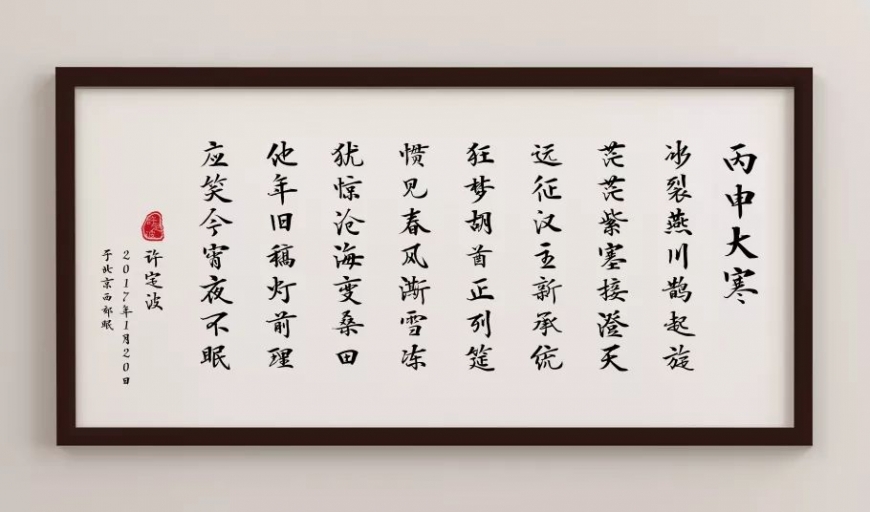 丙申大寒
冰裂燕川鹊起旋
茫茫紫塞接澄天
远征汉主新承统
狂梦胡酋正列筵
惯见春风澌雪冻
犹惊沧海变桑田
他年旧稿灯前理
应笑今宵夜不眠
许定波
2017年1月20日
于北京西郁眠